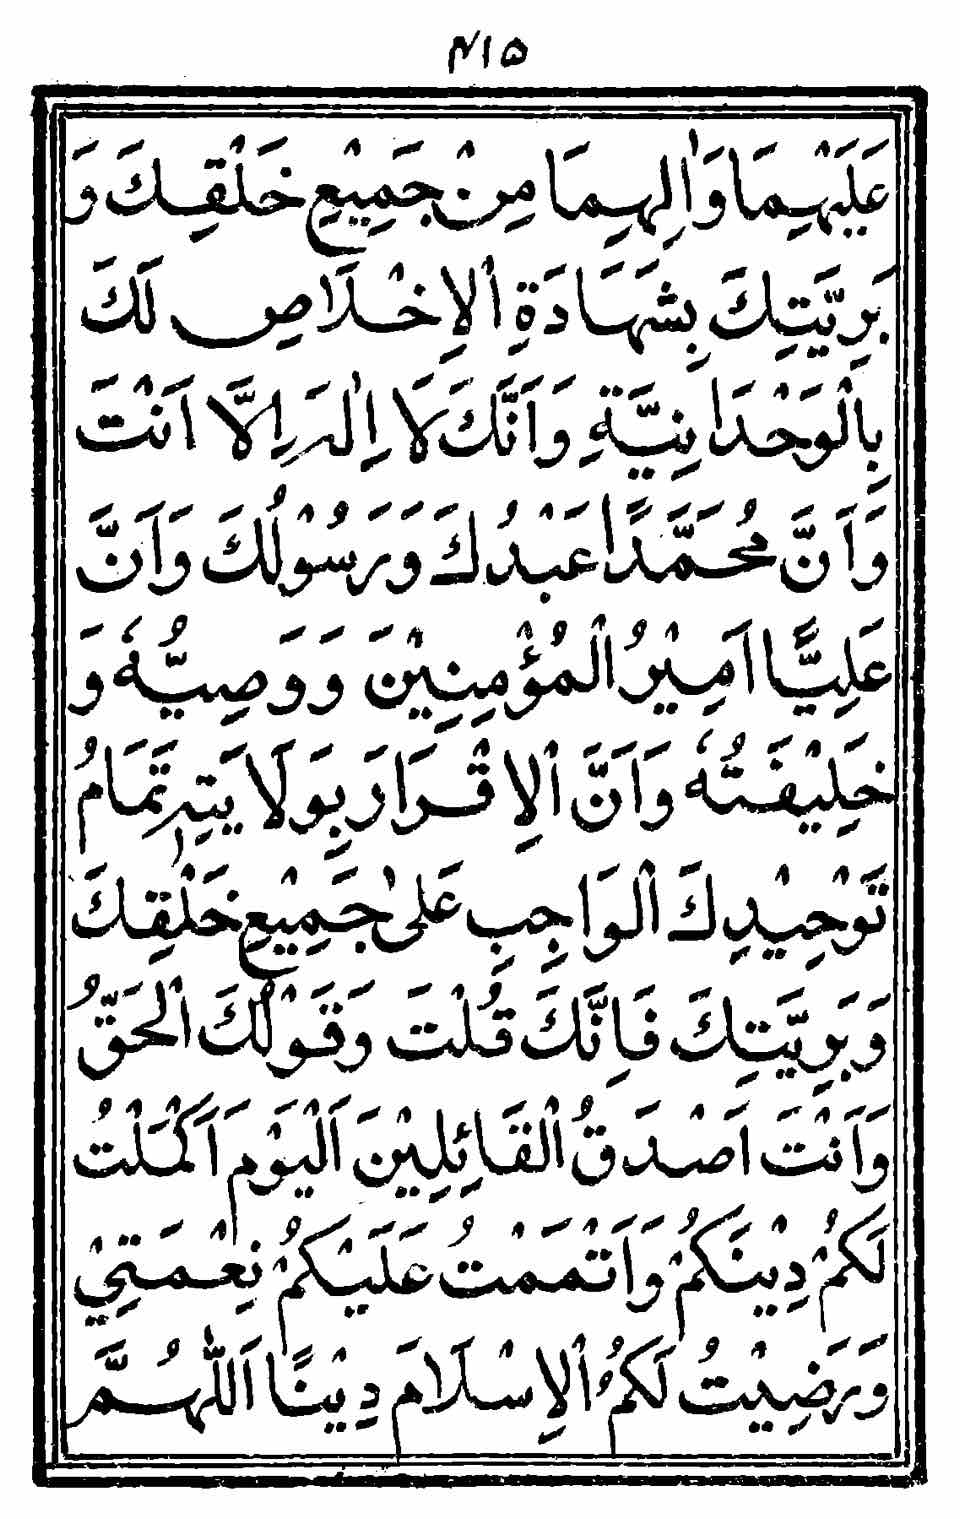 ۴۱۵
عَلَيْهِمَا وَاٰلِهِمَا مِنْ جَمِيْعِ خَلْقِكَ وَ
بَرِيَّتِكَ بِشَهَادَةِ الْاِخْلَاصِ لَكَ
بِالْوَحْدَانِيَّةِ وَاَنَّكَ لَا اِلٰهَ اِلَّا اَنْتَ
وَاَنَّ مُحَمَّدًا عَبْدُكَ وَرَسُوْلُكَ وَاَنَّ
عَلِيًّا اَمِيْرُ الْمُؤْمِنِيْنَ وَوَصِيُّهٗ وَ
خَلِيْفَتُهٗ وَاَنَّ الْاِقْرَارَ بِوَلَايَتِهٖ تَمَامُ
تَوْحِيْدِكَ الْوَاجِبِ عَلٰى جَمِيْعِ خَلْقِكَ
وَبَرِيَّتِكَ فَاِنَّكَ قُلْتَ وَقَوْلُكَ الْحَقُّ
وَاَنْتَ اَصْدَقُ الْقَائِلِيْنَ اَلْيَوْمَ اَكْمَلْتُ
لَكُمْ دِيْنَكُمْ وَاَتْمَمْتُ عَلَيْكُمْ نِعْمَتِيْ
وَرَضِيْتُ لَكُمُ الْاِسْلَامَ دِيْنًا اَللّٰهُمَّ